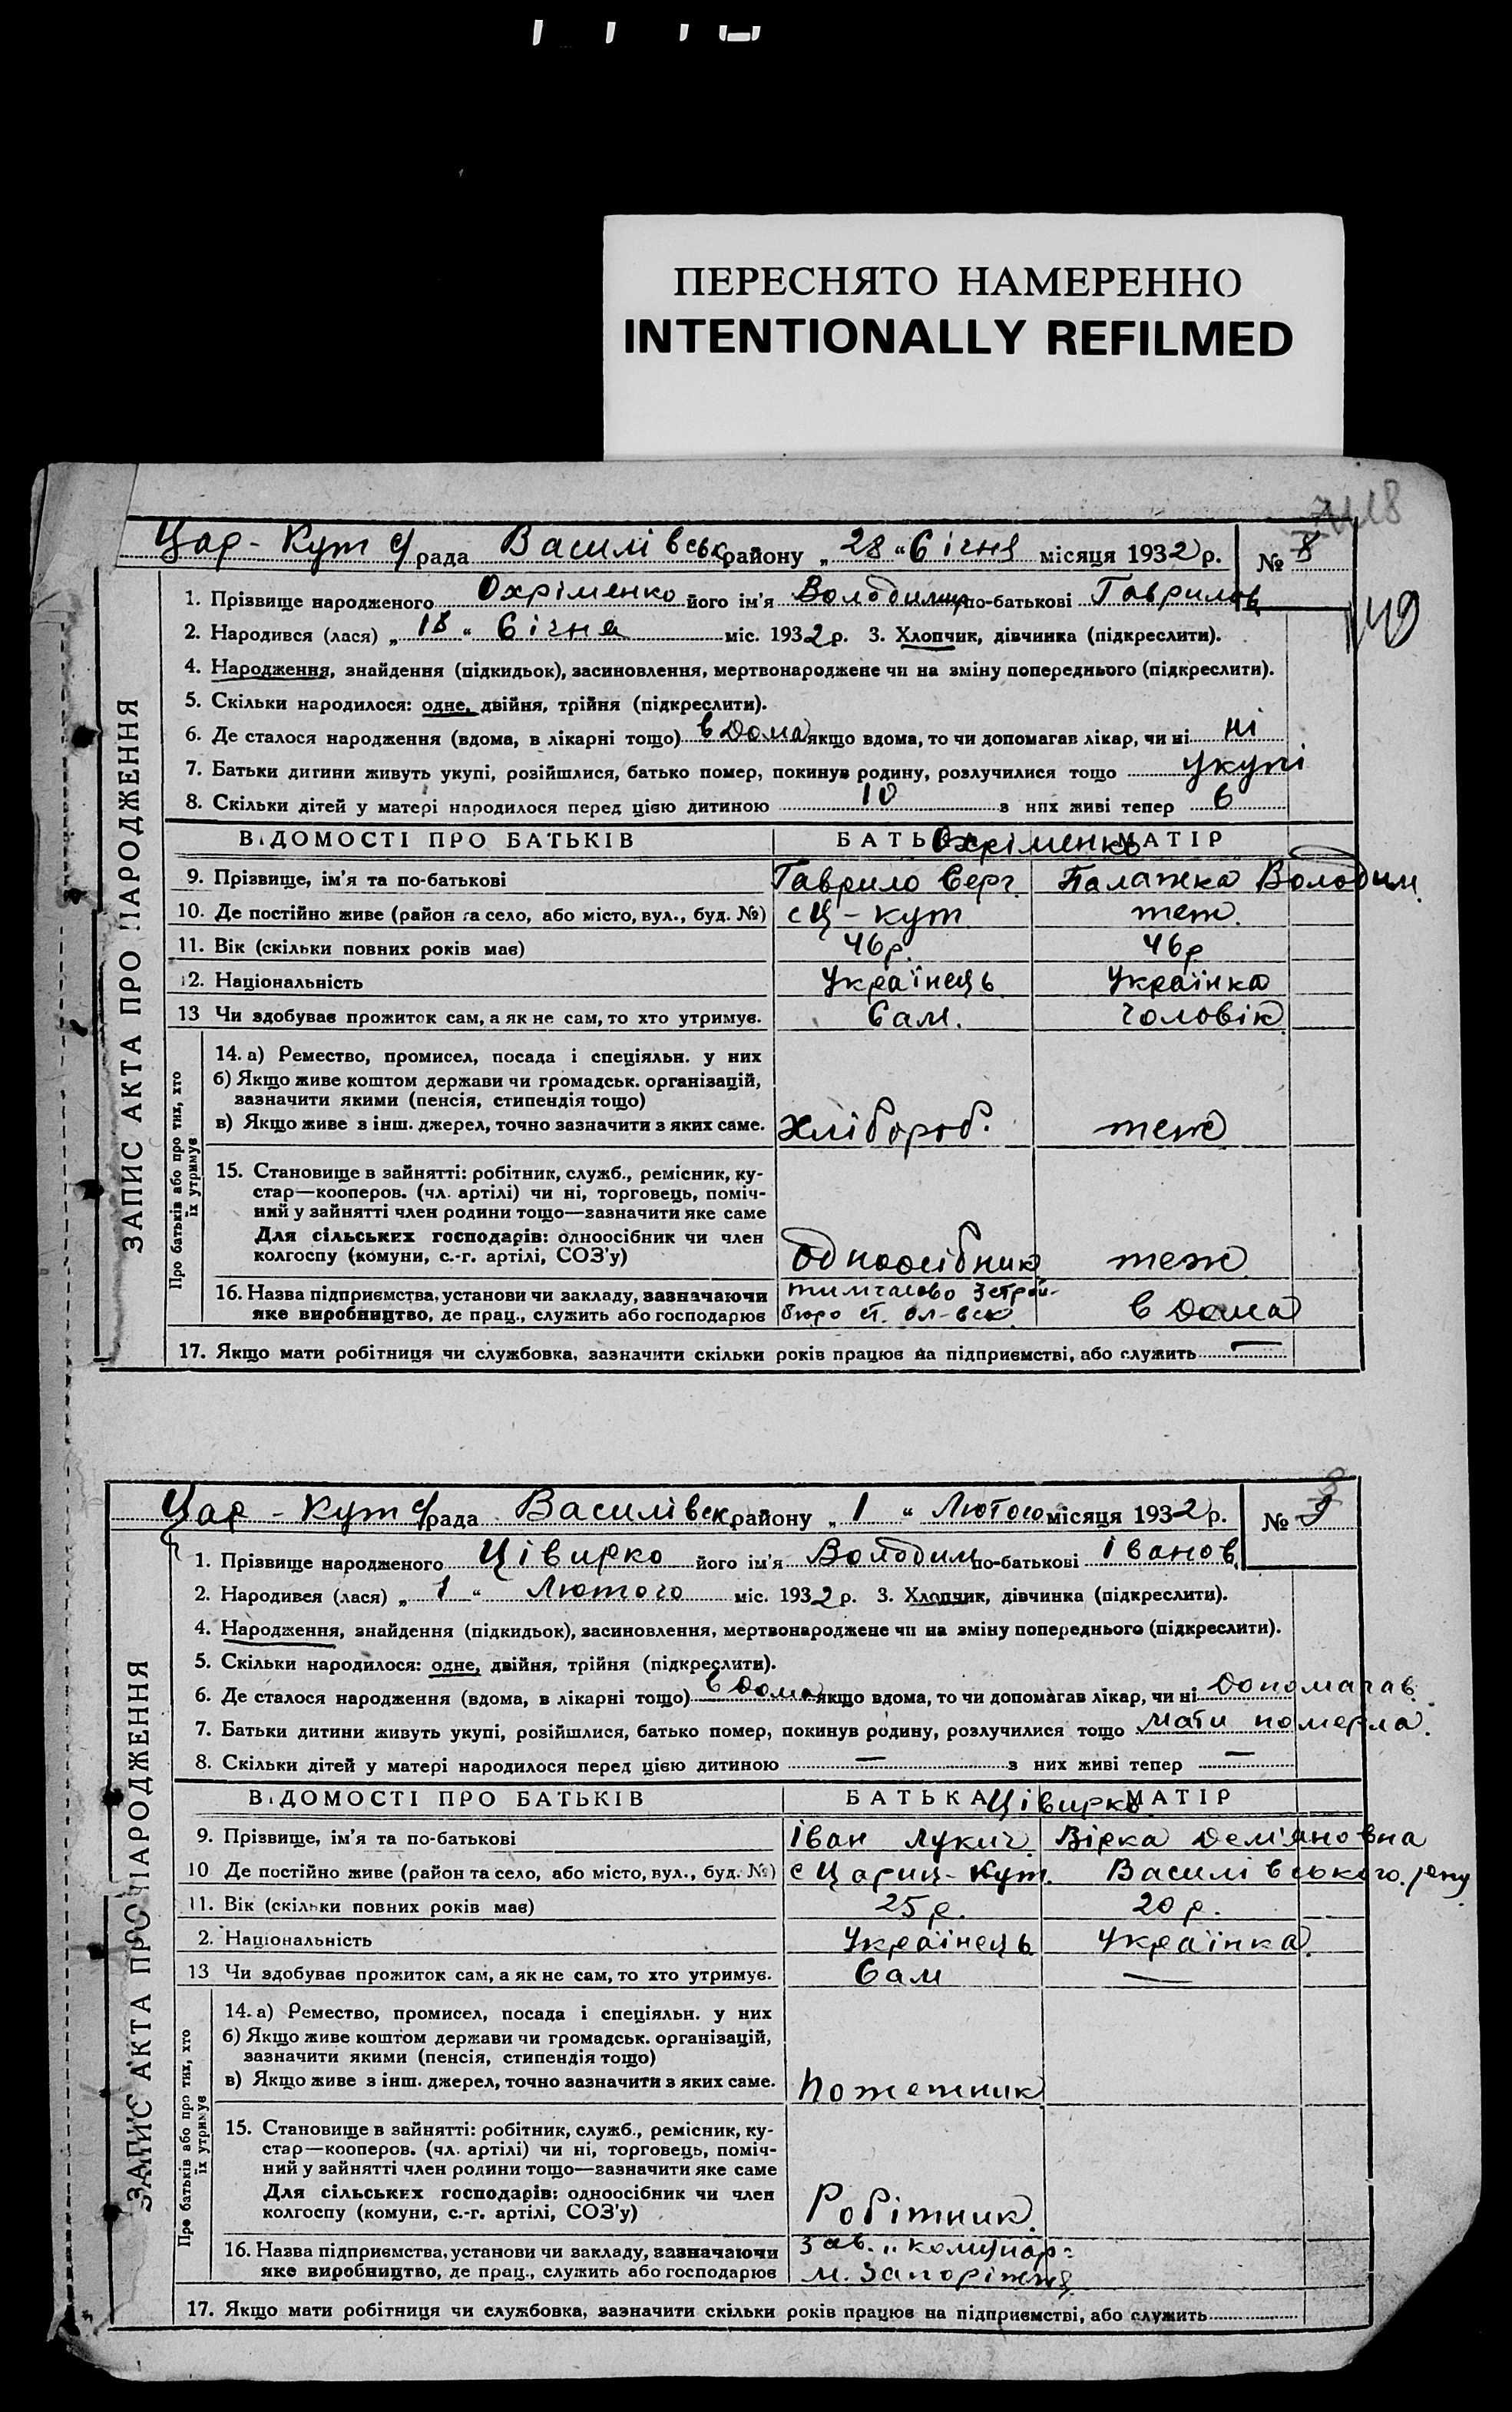 ПЕРЕСНЯТО НАМЕРЕННО
INTENTIONALLY REFILMED
18
Цар-Кут с/рада Василівськ району „28“ Січня місяця 1932 р. № 8
49
ЗАПИС АКТА ПРО НАРОДЖЕННЯ
1. Прізвище народженого Охріменко його ім'я Володимир по-батькові Гаврилов.
2. Народився (лася) „18“ Січня міс. 1932 р. 3. Хлопчик, дівчинка (підкреслити).
4. Народження, знайдення (підкидьок), засиновлення, мертвонароджене чи на зміну попереднього (підкреслити).
5. Скільки народилося: одне, двійня, трійня (підкреслити).
6. Де сталося народження (вдома, в лікарні тощо) в дома якщо вдома, то чи допомагав лікар, чи ні ні
7. Батьки дитини живуть укупі, розійшлися, батько помер, покинув родину, розлучилися тощо укупі
8. Скільки дітей у матері народилося перед цією дитиною 10 з них живі тепер 6
ВІДОМОСТІ ПРО БАТЬКІВ БАТЬКА Охріменко МАТІР
9. Прізвище, ім'я та по-батькові Гаврило Серг. Палажка Володим.
10. Де постійно живе (район та село, або місто, вул., буд. №) с Ц-кут теж.
11. Вік (скільки повних років має) 46р. 46р
12. Національність Українець Українка
13 Чи здобував прожиток сам, а як не сам, то хто утримує. Сам. Чоловік
Про батьків або про тих, хто їх утримує
14. а) Ремество, промисел, посада і спеціяльн. у них
б) Якщо живе коштом держави чи громадськ. організацій,
зазначити якими (пенсія, стипендія тощо)
в) Якщо живе з інш. джерел, точно зазначити з яких саме. Хлібороб. теж
15. Становище в зайнятті: робітник, служб., ремісник, ку-
стар—кооперов. (чл. артілі) чи ні, торговець, поміч-
ний у зайнятті член родини тощо—зазначити яке саме
Для сільських господарів: одноосібник чи член
колгоспу (комуни, с.-г. артілі, СОЗ'у) одноосібник теж
16. Назва підприємства, установи чи закладу, зазначаючи тимчасово
яке виробництво, де прац., служить або господарює бюро ст. в дома
17. Якщо мати робітниця чи службовка, зазначити скільки років працює на підприємстві, або служить —
Цар-Кут с/рада Василівськ району „1“ Лютого місяця 1932 р. № 9
ЗАПИС АКТА ПРО НАРОДЖЕННЯ
1. Прізвище народженого Цівирко його ім'я Володим по-батькові Іванов.
2. Народився (лася) „1“ Лютого міс. 1932 р. 3. Хлопчик, дівчинка (підкреслити).
4. Народження, знайдення (підкидьок), засиновлення, мертвонароджене чи на зміну попереднього (підкреслити).
5. Скільки народилося: одне, двійня, трійня (підкреслити).
6. Де сталося народження (вдома, в лікарні тощо) в дома якщо вдома, то чи допомагав лікар, чи ні допомагав.
7. Батьки дитини живуть укупі, розійшлися, батько помер, покинув родину, розлучилися тощо мати померла.
8. Скільки дітей у матері народилося перед цією дитиною — з них живі тепер —
ВІДОМОСТІ ПРО БАТЬКІВ БАТЬКА Цівирко МАТІР
9. Прізвище, ім'я та по-батькові Іван Лукич Вірка Дем'яновна
10 Де постійно живе (район та село, або місто, вул., буд. №) с Цариц-Кут. Василівського. р-ну
11. Вік (скільки повних років має) 25р. 20р.
2. Національність Українець Українка.
13 Чи здобував прожиток сам, а як не сам, то хто утримує. Сам —
Про батьків або про тих, хто їх утримує
14. а) Ремество, промисел, посада і спеціяльн. у них
б) Якщо живе коштом держави чи громадськ. організацій,
зазначити якими (пенсія, стипендія тощо)
в) Якщо живе з інш. джерел, точно зазначити з яких саме. Пожежник
15. Становище в зайнятті: робітник, служб., ремісник, ку-
стар—кооперов. (чл. артілі) чи ні, торговець, поміч-
ний у зайнятті член родини тощо—зазначити яке саме
Для сільських господарів: одноосібник чи член
колгоспу (комуни, с.-г. артілі, СОЗ'у) Робітник.
16. Назва підприємства, установи чи закладу, зазначаючи зав. „комунар"
яке виробництво, де прац., служить або господарює м. Запоріжжя.
17. Якщо мати робітниця чи службовка, зазначити скільки років працює на підприємстві, або служить